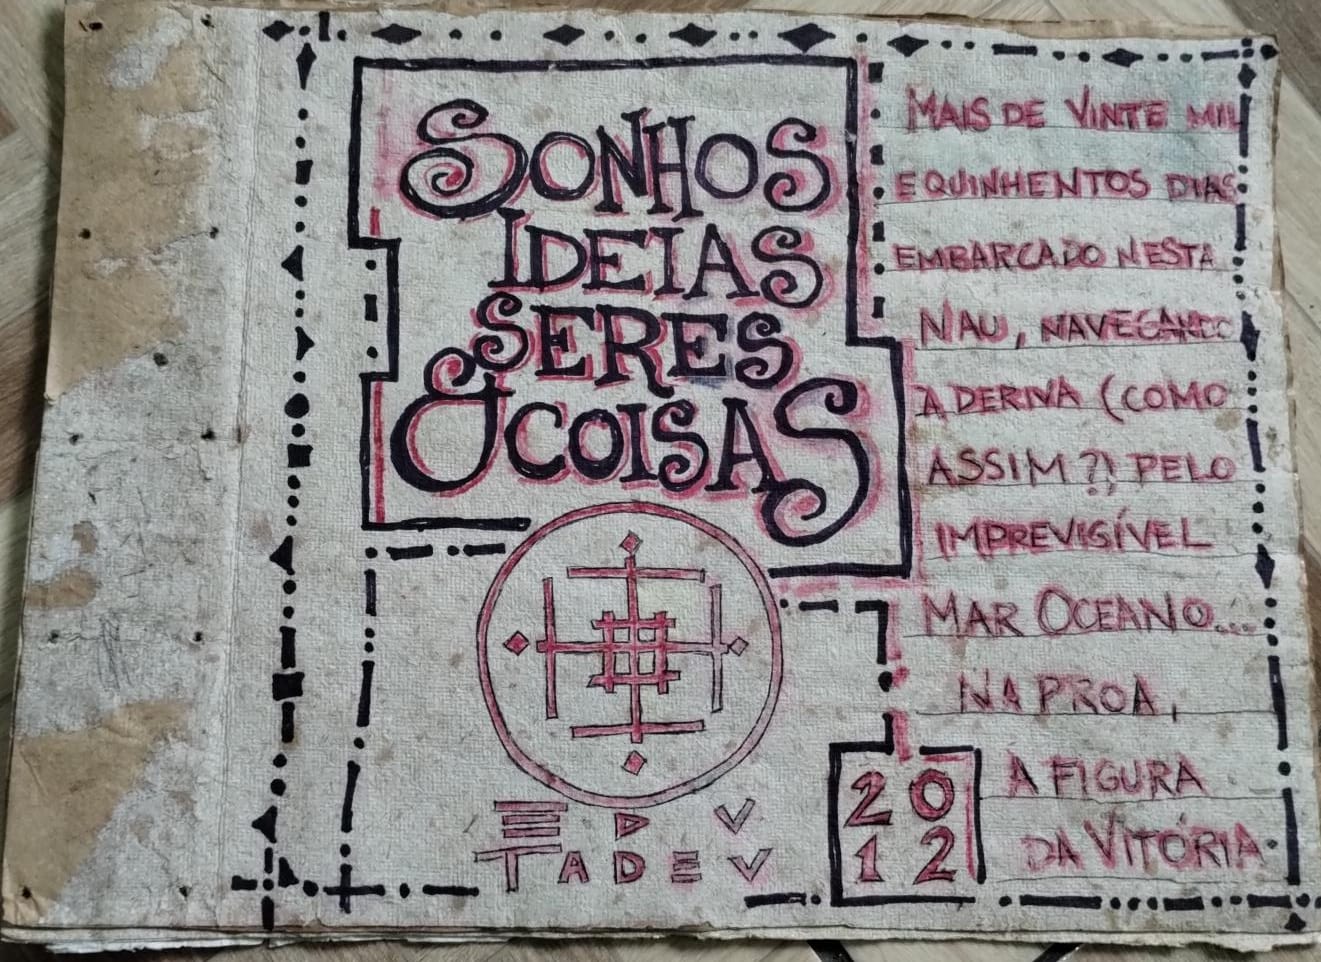 SONHOS
IDEIAS
SERES
& COISAS
EDV
TADEV
20
12
MAIS DE VINTE MIL
E QUINHENTOS DIAS
EMBARCADO NESTA
NAU, NAVEGANDO
À DERIVA (COMO
ASSIM?) PELO
IMPREVISÍVEL
MAR OCEANO...
NA PROA,
A FIGURA
DA VITÓRIA